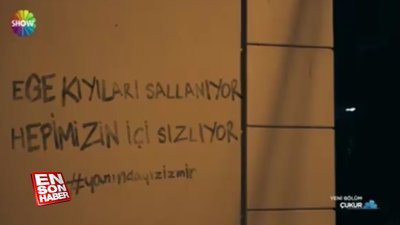 SHOW
EGE KIYILARI SALLANIYOR
HEPİMİZİN İÇİ SIZLIYOR
#yanındayızizmir
EN
SON
HABER
YENİ BÖLÜM
ÇUKUR